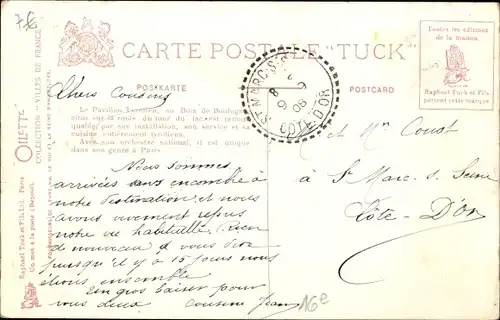 7€
CARTE POSTALE "TUCK"
Toutes les éditions
de la maison
Raphael Tuck et Fils
portent cette marque
POSTKARTE
POSTCARD
ST MARC-S-S
8
9
08
CÔTE-D'OR
Chers Cousins
Le Pavillon Tyrolien, au Bois de Boulogne
situé sur la route du tour du lac
par son installation, son service et sa
cuisine entièrement tyroliens.
Avec son orchestre national, il est unique
dans son genre à Paris
OILETTE
COLLECTION - VILLES DE FRANCE
Raphael Tuck et Fils Ltd. Paris
Un mot à la poste (Déposé)
et Mme Couot
à St Marc s. Seine
Côte-D'Or
Nous sommes
arrivées sans encombre à
notre destination et nous
avons vivement repris
notre vie habituelle. Rien
de nouveau à vous dire
puisqu'il y a 15 jours nous
étions ensemble
Un gros baiser pour
vous deux
cousine Jeanne
16e